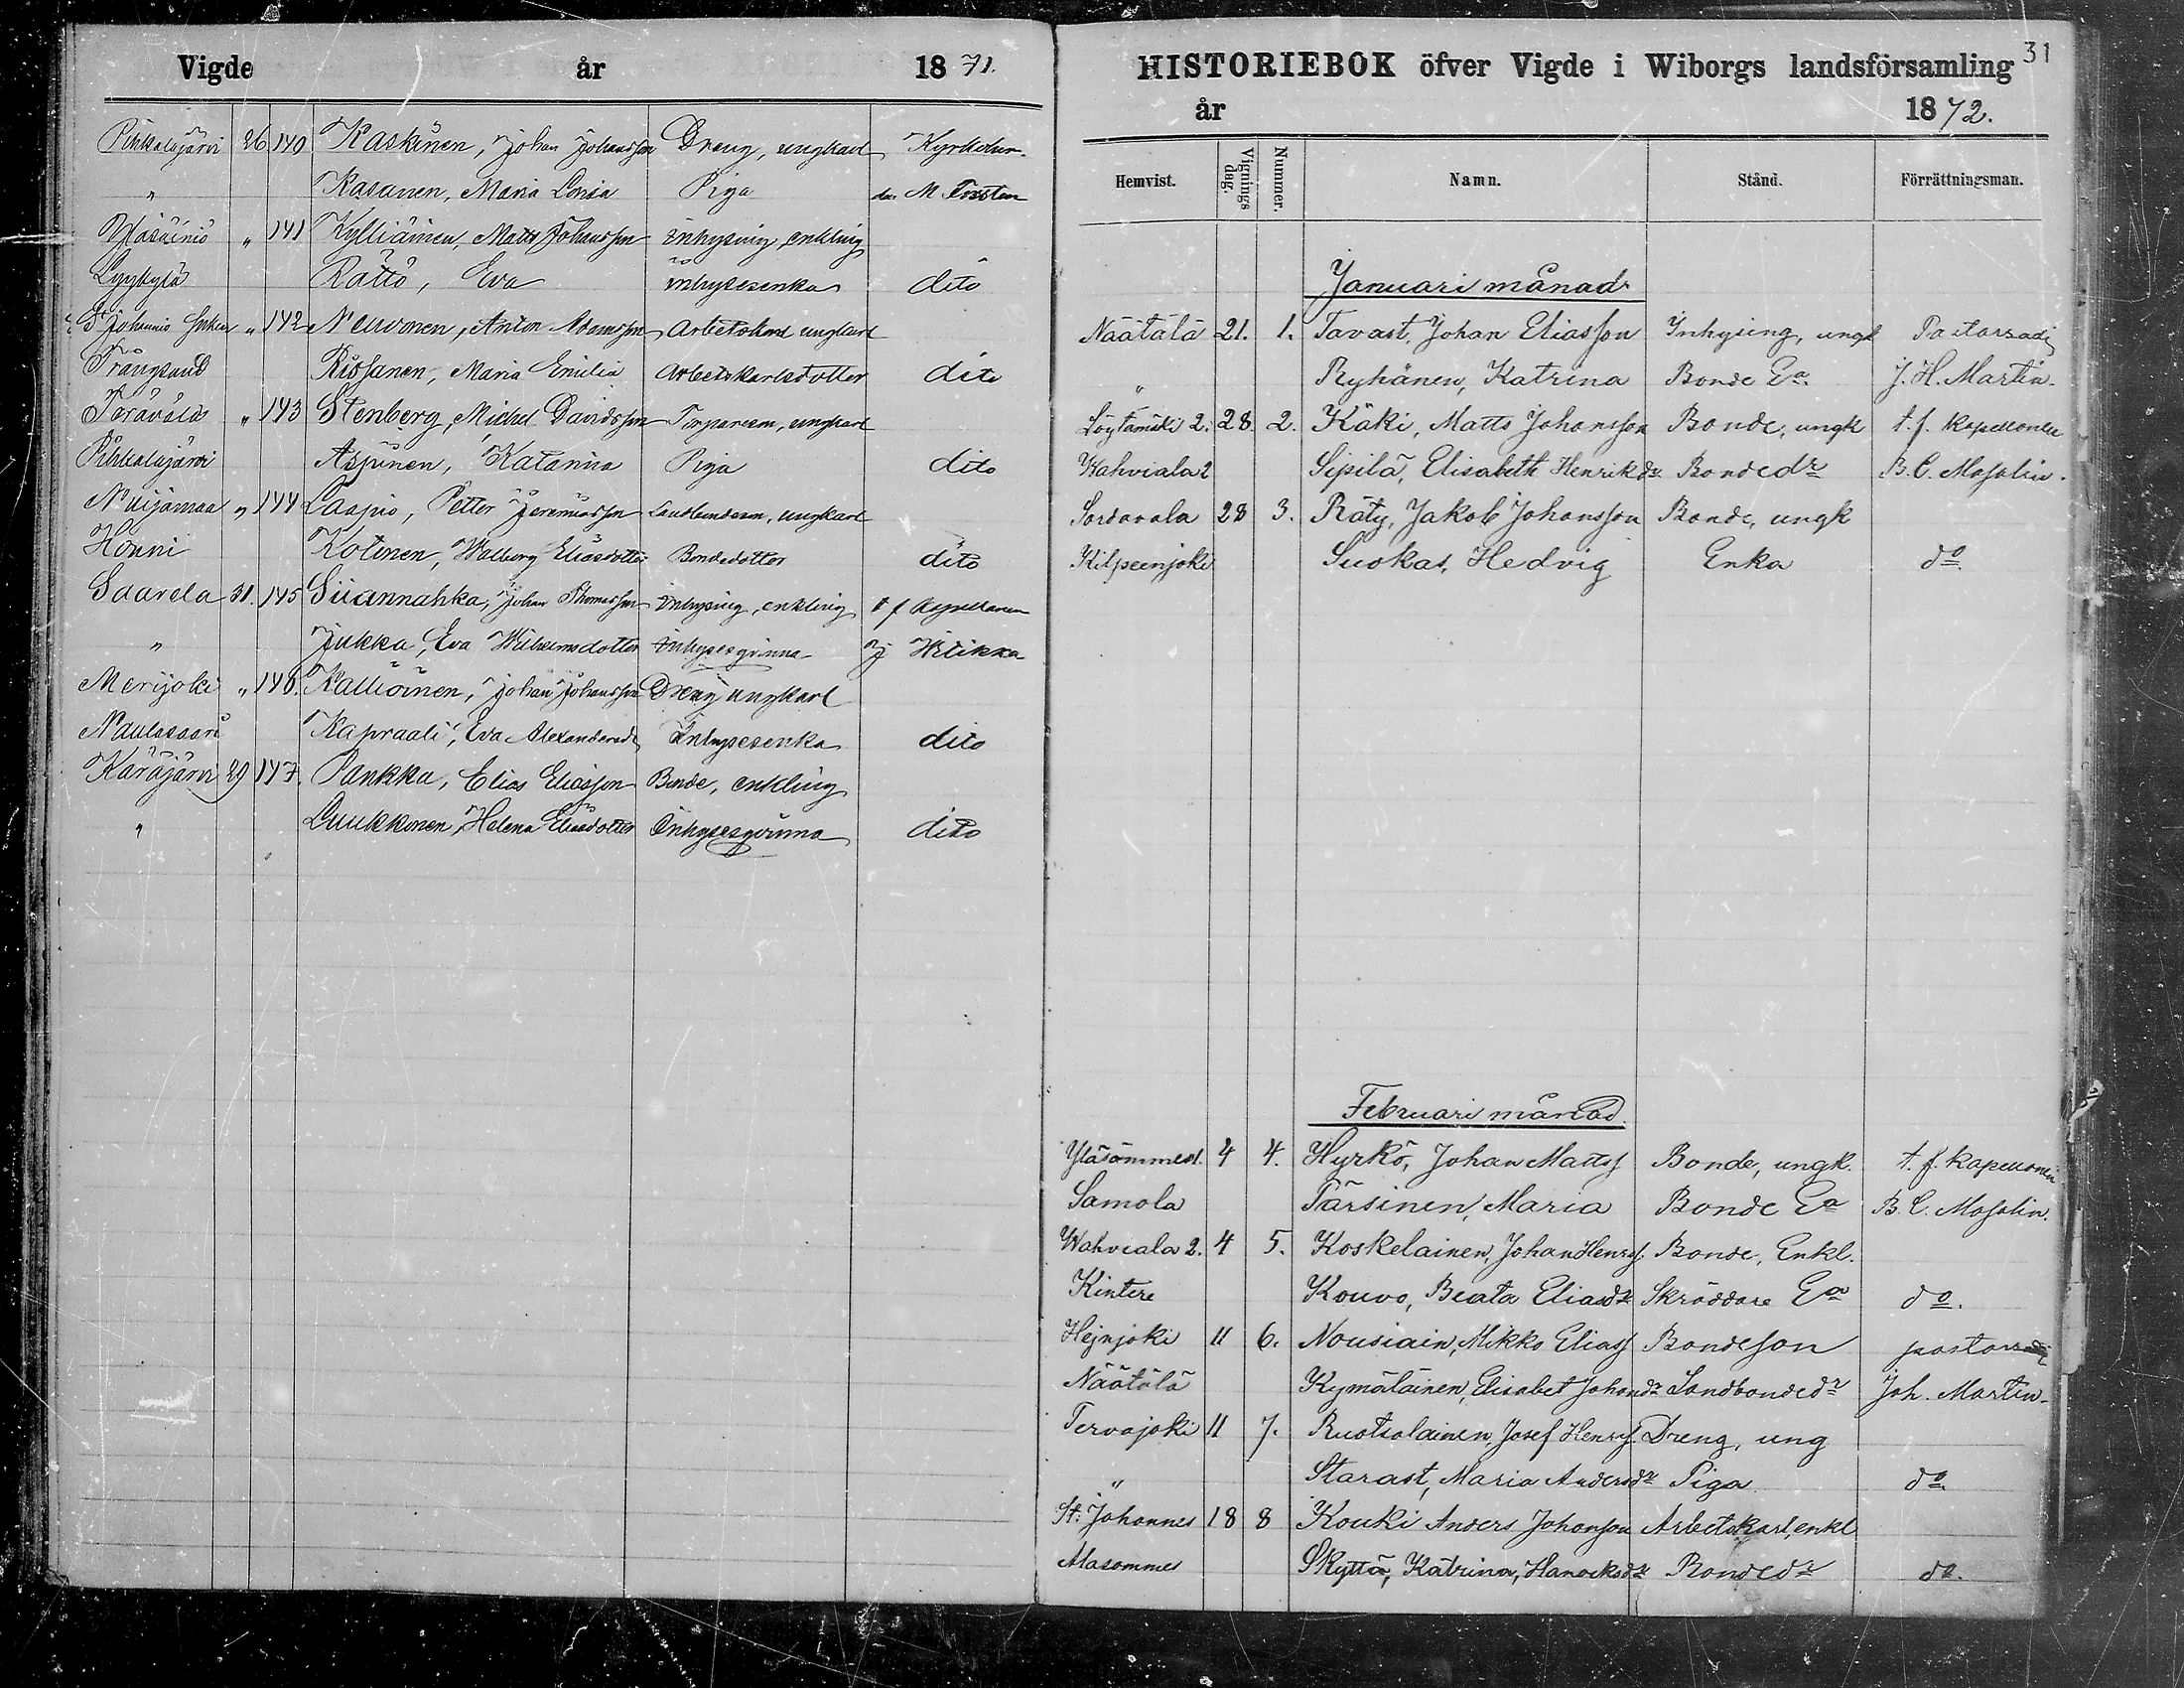 Vigde år 1871.
Pihkalajärvi 26 140 Kaskinen, Johan Johansson Dreng, ungkarl Kyrkoher-
" Kasanen, Maria Lovisa Piga den M. Forsten
" 141 Kylliäinen, Matts Johansson Inhysing, enkling
Lyykylä Rättö, Eva inhysesenka dito
St Johannis " 142 Neuvonen, Anton Adamsson Arbetskarl ungkarl
Trångsund Rissanen, Maria Emilia Arbetskarlsdotter dito
Terävälä " 143 Stenberg, Michel Davidsson Torpareson, ungkarl
Pihkalajärvi Aspinen, Katarina Piga dito
Nuijamaa " 144 Laapio, Petter Jeremiasson Landbondeson, ungkarl
Honni Kotinen, Walborg Eliasdotter Bondedotter dito
Saarela 31. 145 Siiannahka, Johan Thomasson Inhysing, enkling t f Kapellanen
" Jukka, Eva Wilhelmsdotter Inhysesqvinna Hj Hitikka
Merijoki " 146. Kalliöinen, Johan Johansson Dreng ungkarl
Naulasaari Kapraali, Eva Alexandersdr Inhysesenka dito
Käräjärvi 29 147. Pankka, Elias Eliasson Bonde, enkling
" Luukkonen, Helena Eliasdotter Inhysesqvinna dito
31
HISTORIEBOK öfver Vigde i Wiborgs landsförsamling
år 1872.
Hemvist. Vignings dag. Nummer. Namn. Stånd. Förrättningsman.
Januari månad
Näätälä 21. 1. Tavast, Johan Eliasson Inhysing, ungk Pastorsadj
" Ryhänen, Katrina Bonde Ea J. H. Martin.
Löytämäki 2. 28. 2. Käki, Matts Johansson Bonde, ungk t. f. Kapellanen
Wahviala 2 Sipilä, Elisabeth Henriksdr Bondedr B. C. Mosolin.
Sordavala 28 3. Räty, Jakob Johansson Bonde, ungk
Kilpeenjoki Suokas, Hedvig Enka do
Februari månad.
Yläsämmeel. 4 4. Hyrkö, Johan Mattss Bonde, ungk. t. f. kapellanen
Samola Tärsinen, Maria Bonde Ea B. C. Mosolin.
Wahviala 2. 4 5. Koskelainen, Johan Henrss Bonde, Enkl.
Kintere Kouvo, Beata Eliasdr Skräddare Ea do.
Hejnjoki 11 6. Nousiain, Mikko Eliass Bondeson pastorsadj
Näätälä Kymäläinen, Elisabet Johansdr Landbondedr Joh. Martin-
Tervajoki 11 7. Ruotsalainen, Josef Henrss. Dreng, ung
" Starast, Maria Andersdr Piga do.
St: Johannes 18 8 Kouki Anders Johansson Arbetskarl, enkl
Alasomme Skyttä, Katrina, Hanoksdr Bondedr do.